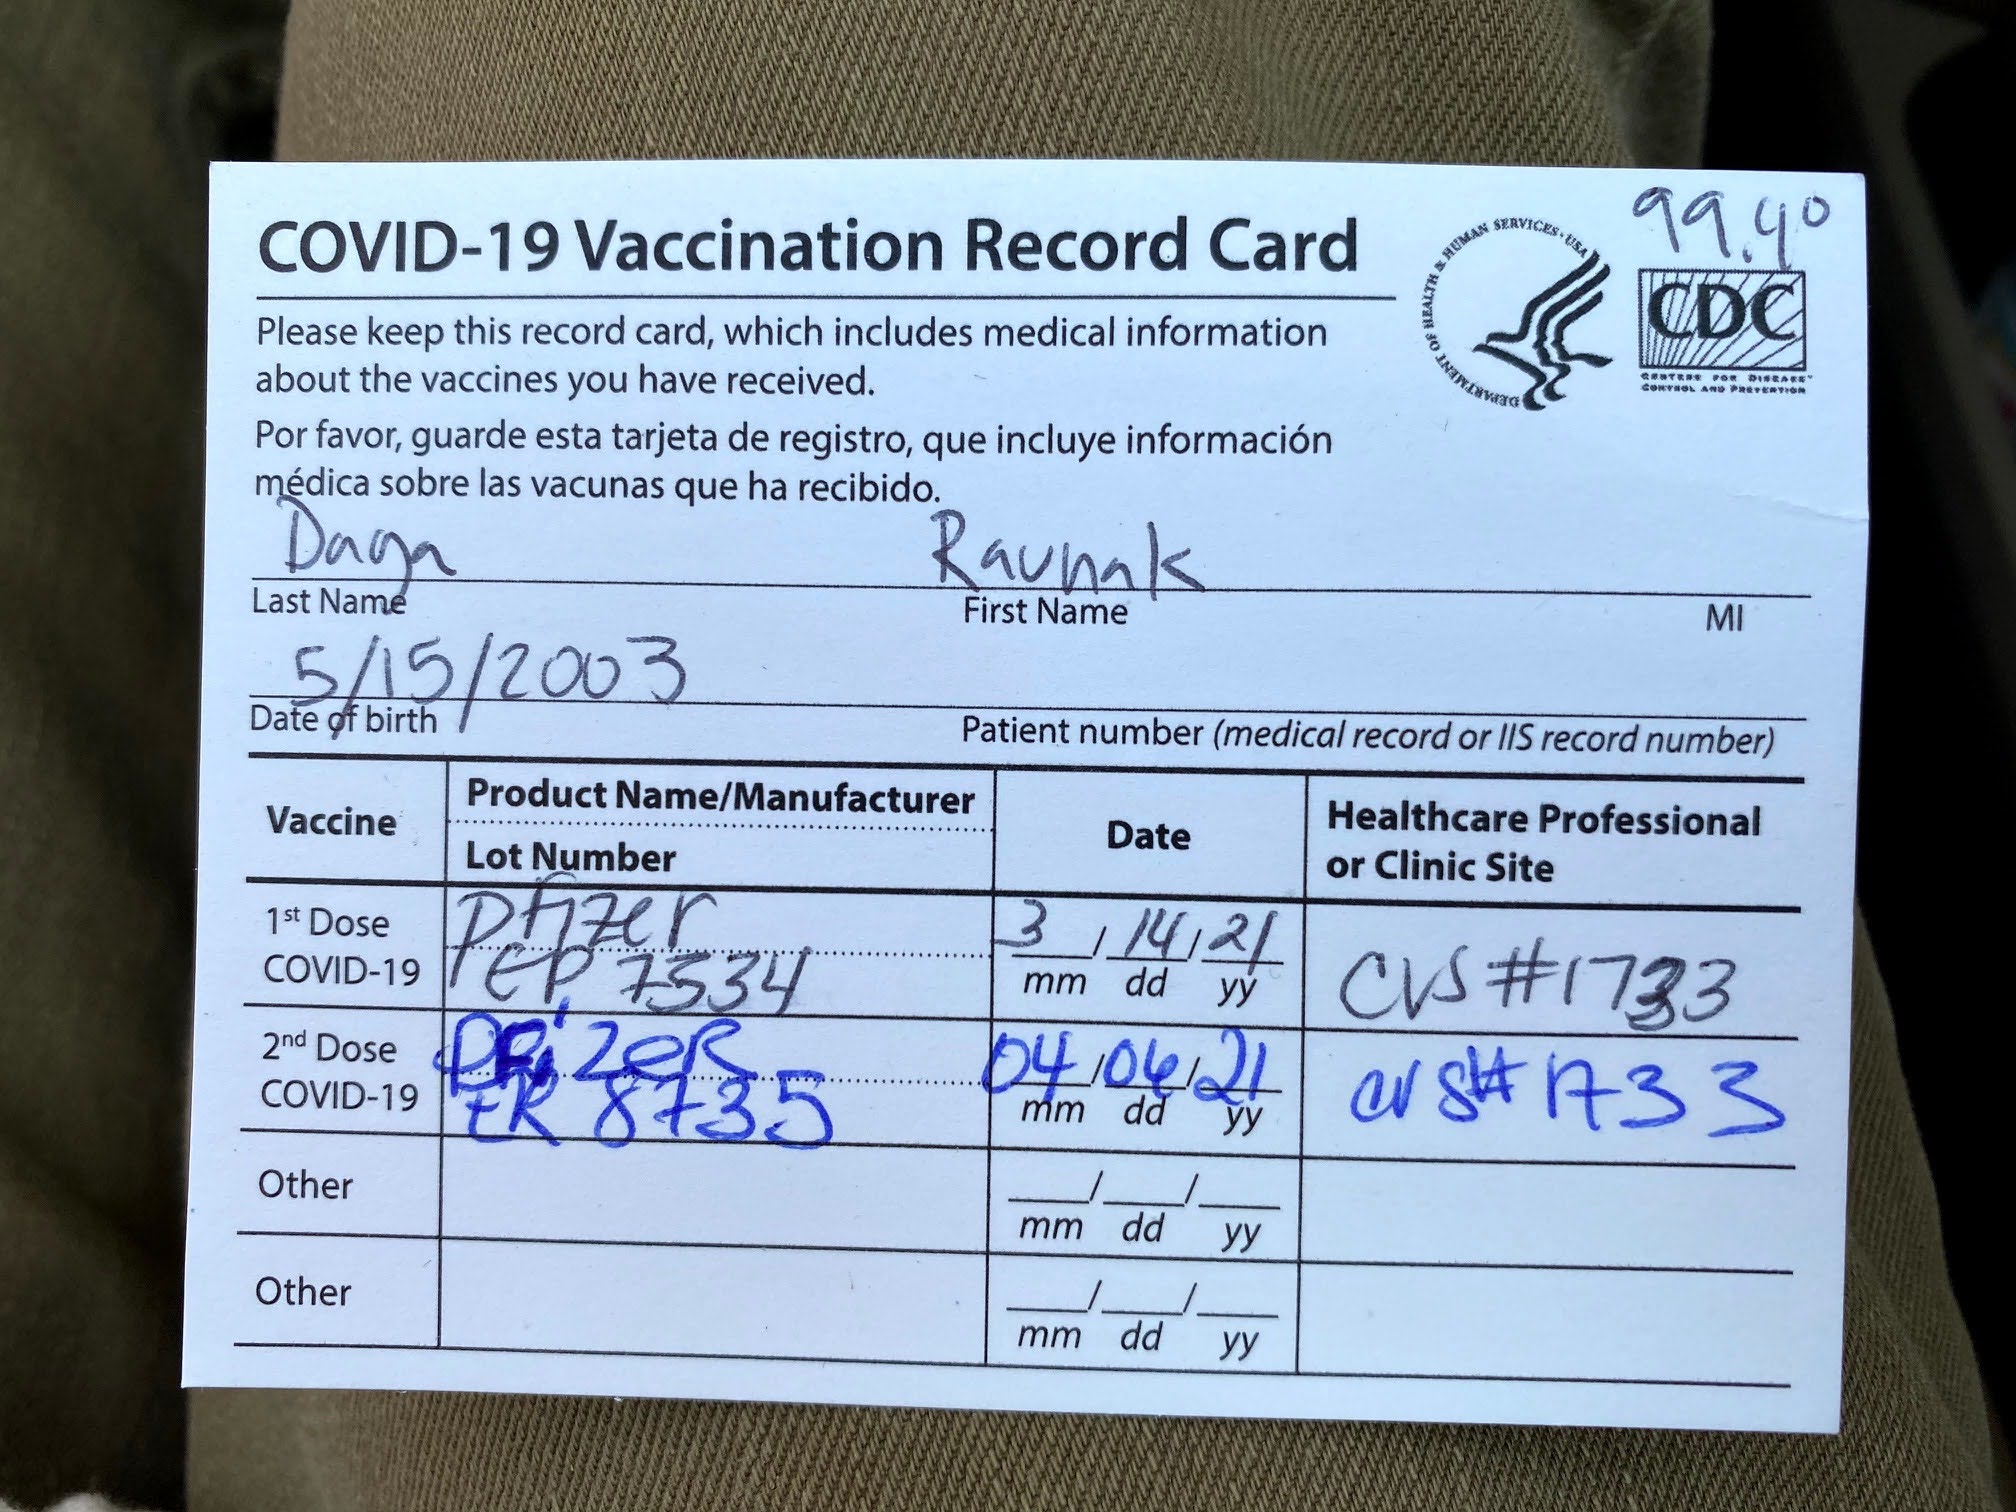 99.4°
COVID-19 Vaccination Record Card
DEPARTMENT OF HEALTH & HUMAN SERVICES · USA
CDC
CENTERS FOR DISEASE™
CONTROL AND PREVENTION
Please keep this record card, which includes medical information
about the vaccines you have received.
Por favor, guarde esta tarjeta de registro, que incluye información
médica sobre las vacunas que ha recibido.
Daga Raunak
Last Name First Name MI
5/15/2003
Date of birth Patient number (medical record or IIS record number)
Vaccine Product Name/Manufacturer Date Healthcare Professional
Lot Number or Clinic Site
1st Dose Pfizer 3 / 14 / 21
COVID-19 EP 7534 mm dd yy CVS #1733
2nd Dose PFizeR 04 / 06 / 21
COVID-19 ER 8735 mm dd yy CVS# 1733
Other / /
mm dd yy
Other / /
mm dd yy